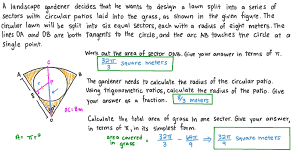 A landscape gardener decides that he wants to design a lawn split into a series of
sectors with circular patios laid into the grass, as shown in the given figure. The
circular lawn will be split into six equal sectors, each with a radius of eight meters. The
lines OA and OB are both tangents to the circle, and the arc AB touches the circle at a
single point.
Work out the area of sector OAB. Give your answer in terms of π.
32π/3 square meters
The gardener needs to calculate the radius of the circular patio.
Using trigonometric ratios, calculate the radius of the patio. Give
your answer as a fraction. 8/3 meters
Calculate the total area of grass in one sector. Give your answer,
in terms of π, in its simplest form.
area covered in grass = 32π/3 - 64π/9 ⇒ 32π/9 square meters
A = πr²